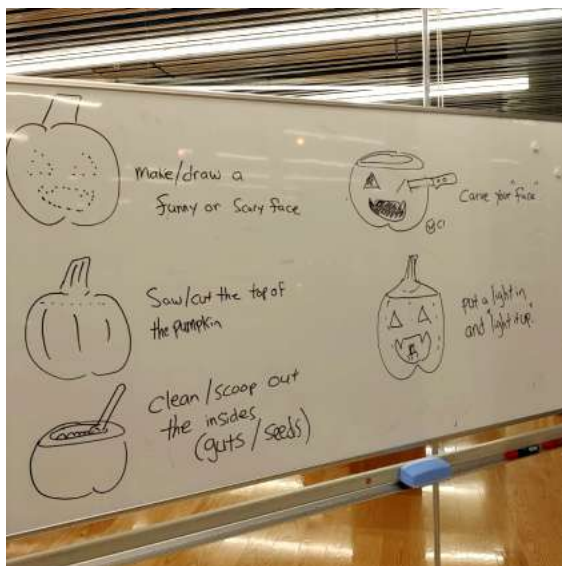 make/draw a
funny or scary face
Saw/cut the top of
the pumpkin
clean/scoop out
the insides
(guts/seeds)
Carve your "face"
put a light in
and "light it up."